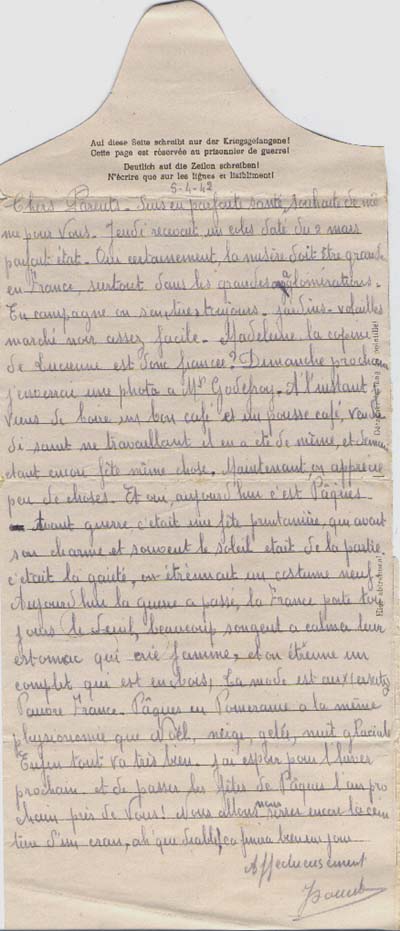 Auf diese Seite schreibt nur der Kriegsgefangene!
Cette page est réservée au prisonnier de guerre!
Deutlich auf die Zeilen schreiben!
N'écrire que sur les lignes et lisiblement!
5-4-42
Chers Parents - Suis en parfaite santé, souhaite de mê
me pour Vous - Jeudi recevait un colis daté du 2 mars
parfait état. Oui certainement, la misère doit être grande
en France, surtout dans les grandes agglomérations -
En campagne on s'en tire toujours - jardins - volailles
marché noir assez facile - Madeleine la copine
de Lucienne est donc fiancée? Dimanche prochain
j'enverrai une photo a Mr Godefroy - A l'instant
viens de boire un bon café et un pousse café, Ven
di saint ne travaillant il en a été de même, et demain
étant encore fête même chose. Maintenant on apprécie
peu de choses. Et oui, aujourd'hui c'est Pâques
Avant guerre c'était une fête printanière, qui avait
son charme et souvent le soleil était de la partie
c'était la gaieté, on étrennait un costume neuf -
Aujourd'hui la guerre a passé, la France porte tou
jours le Deuil, beaucoup songent a calmer leur
estomac qui crie famine, et on étrenne un
complet qui est en bois, La mode est aux
Pauvre France - Pâques en Pomeranie a la même
physionomie que Noël, neige, gelée, nuit glaciale
Enfin tout va très bien - j'ai espoir pour l'hiver
prochain - et de passer les fêtes de Pâques l'an pro
chain près de Vous! Nous allons nous serrer encore la cein
ture d'un cran, ah! que diable, ça finira bien un jour
Affectueusement